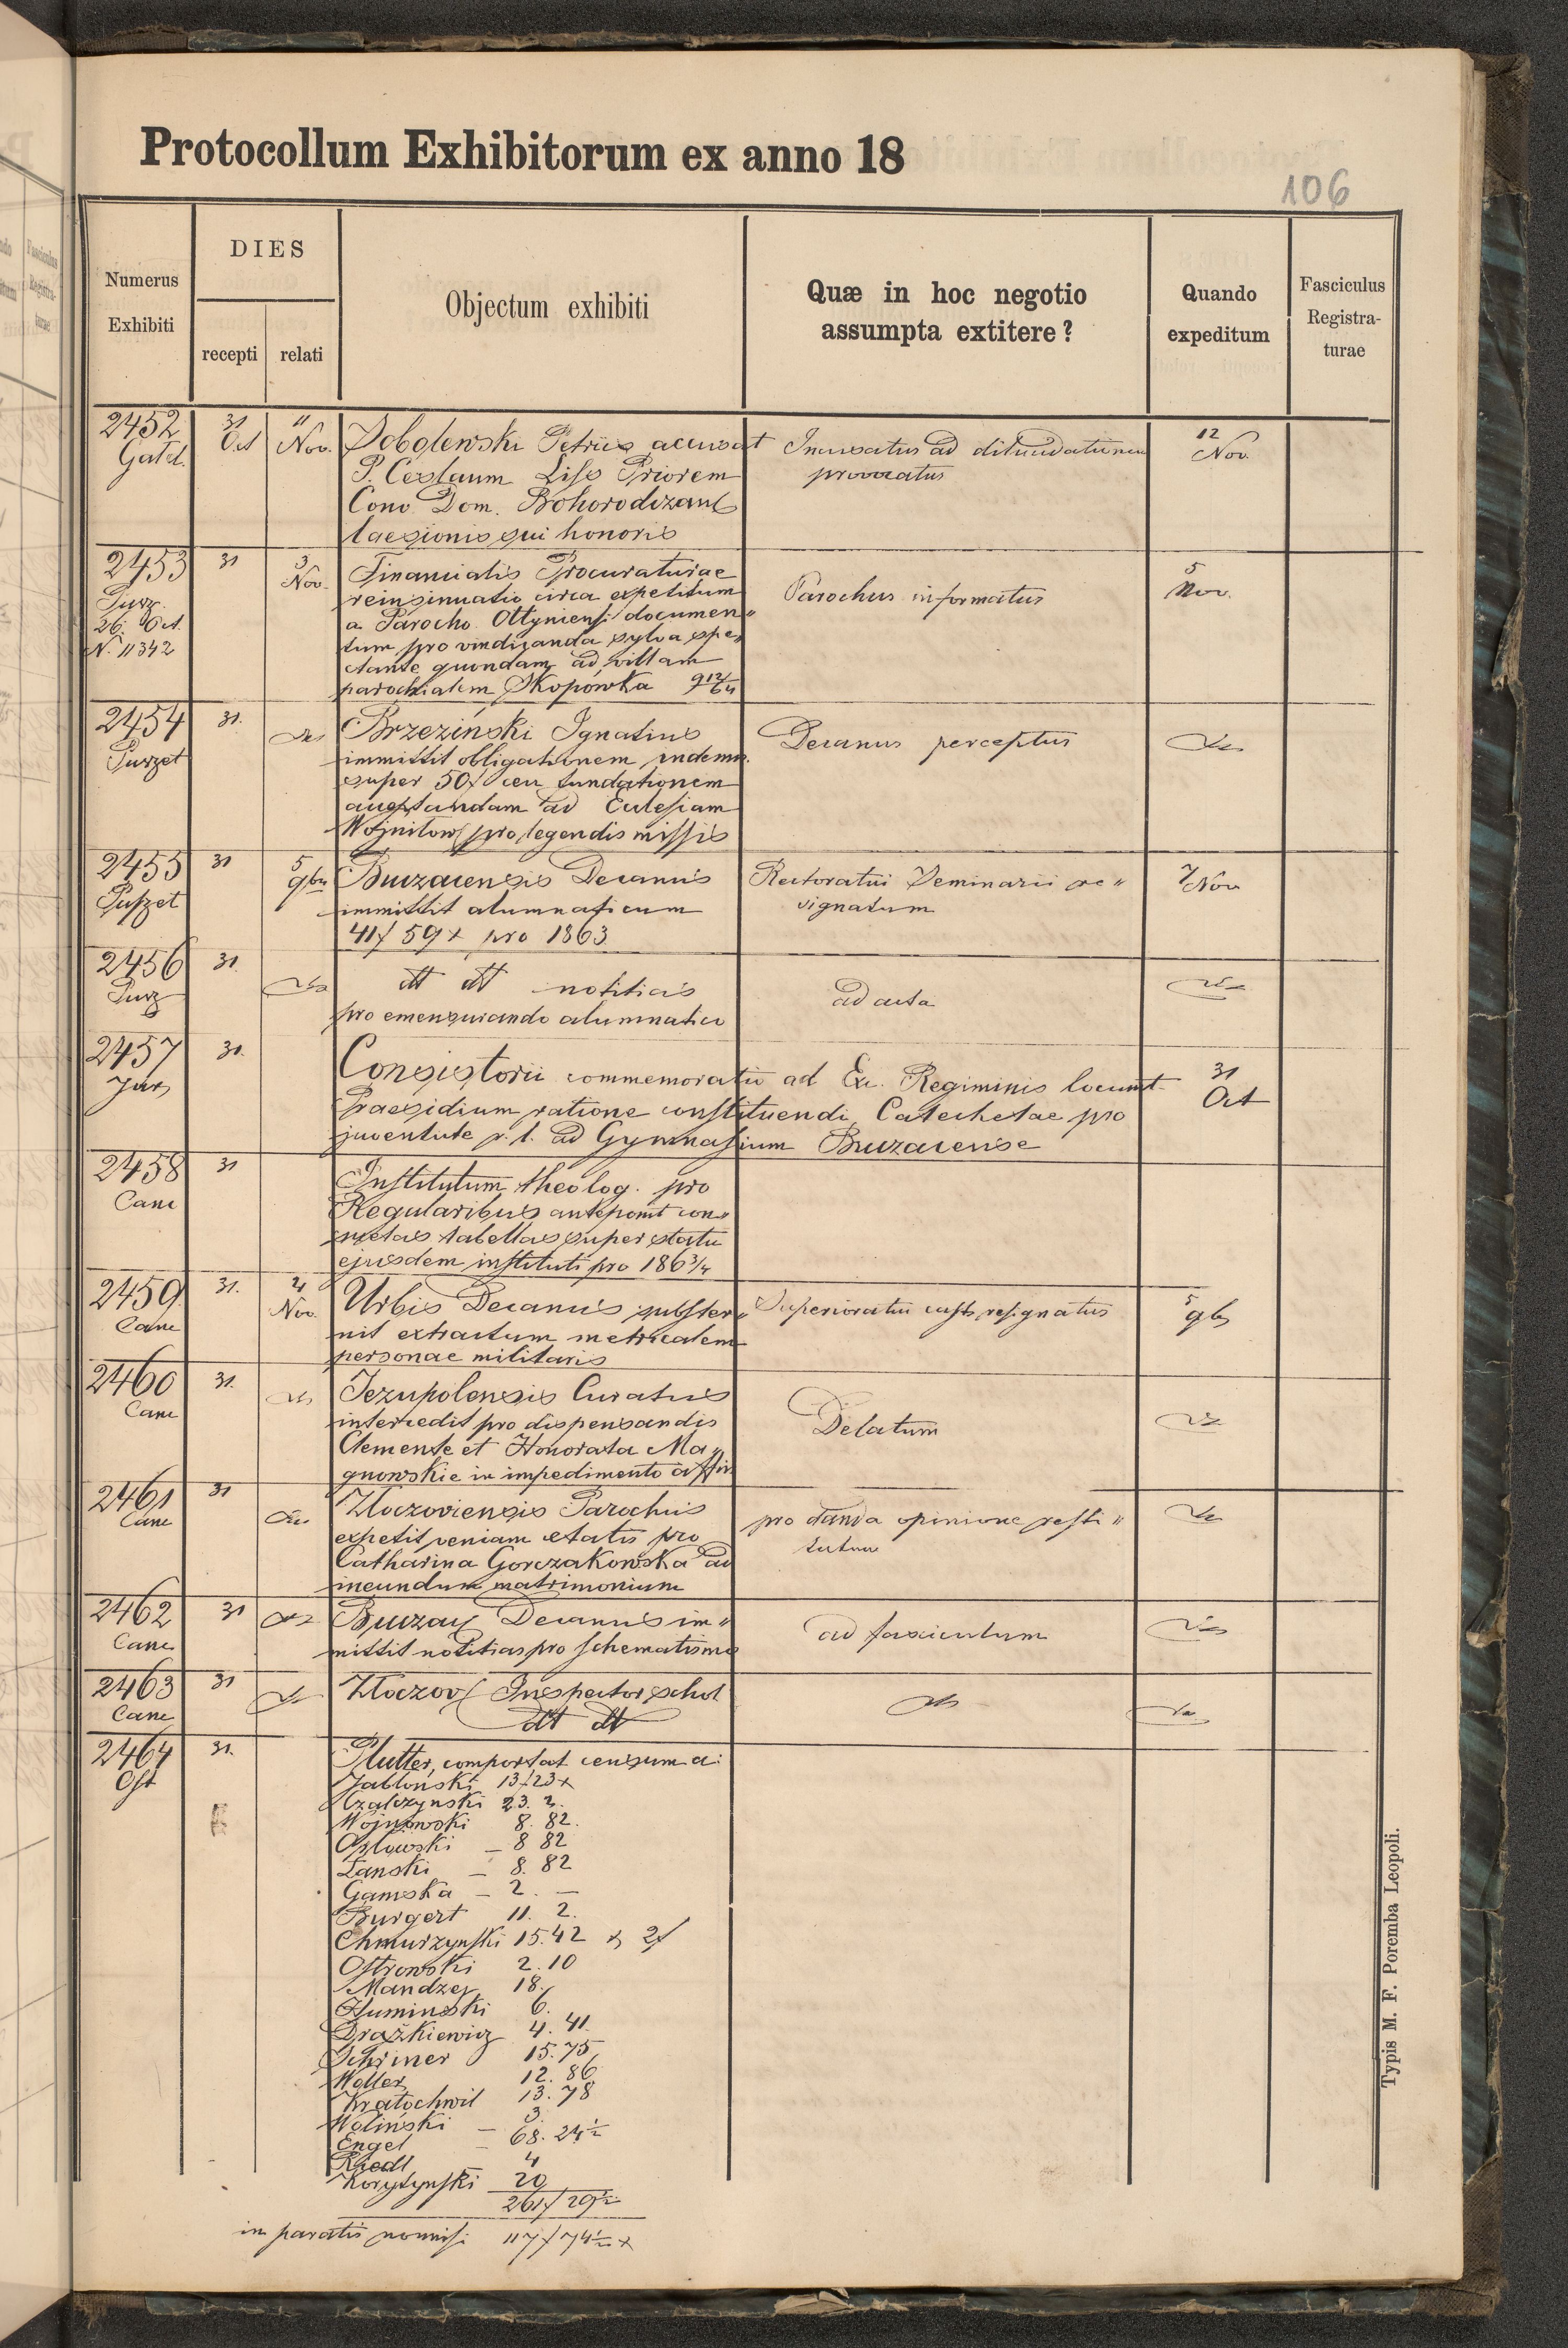 Protocollum Exhibitorum ex anno 18
106
Numerus Exhibiti
DIES
recepti
relati
Objectum exhibiti
Quæ in hoc negotio assumpta extitere?
Quando expeditum
Fasciculus Registra-turae
2452
31 Oct
11 Nov.
Sobolewski Petrus accusat
P. Ceslaum Liss Priorem
Conv. Dom. Bohorodczan
laesionis sui honoris
Incusatus ad dilucidationem
provocatus
12 Nov.
2453
26. Oct.
N. 11342
31
3 Nov.
Financialis Procuraturae
reinsinuatio circa expetitum
a Parocho Ottyniensi documen"
tum pro vindicanda sylva spe"
ctante quondam ad villam
parochialem Skopówka 9 12/64
Parochus informatus
5 Nov.
2454
31.
Brzeziński Ignatius
immittit obligationem indemn.
super 50f ceu fundationem
acceptandam ad Ecclesiam
pro legendis missis
Decanus perceptus
2455
31
5 9br
Buczacensis Decanus
immittit alumnaticum
41f 59x pro 1863
Rectoratui Seminarii re"
signatum
7 Nov
2456
31.
dt dt notitias
pro emensurando alumnatico
ad acta
2457
31.
Consistorii commemoratio ad Exc. Regiminis locumt.
Praesidium ratione constituendi Catechetae pro
juventute r. l. ad Gymnasium Buczacense
31 Oct
2458
Canc
31
Institutum theolog. pro
Regularibus anteponit con"
suetas tabellas super statu
ejusdem instituti pro 1863/4
2459
Canc
31.
4 Nov.
Urbis Decanus subster"
nit extractum metricalem
personae militaris
Superioratui castr. resignatus
5 9br
2460
Canc
31.
Jezupolensis Curatus
intercedit pro dispensandis
Clemente et Honorata Ma"
gnowskie in impedimento affin
Delatum
2461
Canc
31
Złoczoviensis Parochus
expetit veniam aetatis pro
Catharina Gorczakowska ad
ineundum matrimonium
pro danda opinione resti"
tutum
2462
Canc
31
Buczac Decanus im"
mittit notitias pro Schematismo
ad fasciculum
2463
Canc
31
Złoczov Inspector schol
dt dt
2464
Ost
31.
Plutter comportat censum a:
Jabłonski 13f 23x
Czalczynski 23. 2.
Wojnowski 8. 82.
Orlowski – 8 82
Łanski – 8. 82
Gamska – 2. –
Burgert 11. 2.
Chmurzynski 15. 42 x 2f
Ostrowski 2. 10
Mandzej 18.
Huminski 6.
Drażkiewicz 4. 41
Schriner 15. 75
Woller 12. 86
Kratochwil 13. 78
Woliński – 3.
Engel – 68. 24½
Riedl 4
Korytynski – 20
261f 29½
in paratis nonnisi 117f 74½x
Typis M. F. Poremba Leopoli.